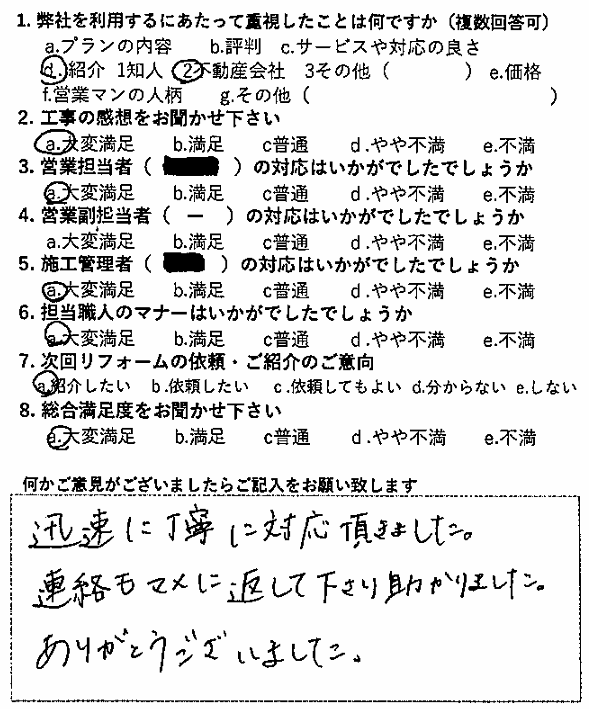 1. 弊社を利用するにあたって重視したことは何ですか（複数回答可）
a.プランの内容 b.評判 c.サービスや対応の良さ
d.紹介 1知人 2不動産会社 3その他（ ）e.価格
f.営業マンの人柄 g.その他（ ）
2. 工事の感想をお聞かせ下さい
a.大変満足 b.満足 c普通 d.やや不満 e.不満
3. 営業担当者（ ）の対応はいかがでしたでしょうか
a.大変満足 b.満足 c普通 d.やや不満 e.不満
4. 営業副担当者（ ー ）の対応はいかがでしたでしょうか
a.大変満足 b.満足 c普通 d.やや不満 e.不満
5. 施工管理者（ ）の対応はいかがでしたでしょうか
a.大変満足 b.満足 c普通 d.やや不満 e.不満
6. 担当職人のマナーはいかがでしたでしょうか
a.大変満足 b.満足 c普通 d.やや不満 e.不満
7. 次回リフォームの依頼・ご紹介のご意向
a.紹介したい b.依頼したい c.依頼してもよい d.分からない e.しない
8. 総合満足度をお聞かせ下さい
a.大変満足 b.満足 c普通 d.やや不満 e.不満
何かご意見がございましたらご記入をお願い致します
迅速に丁寧に対応頂きました。
連絡もマメに返して下さり助かりました。
ありがとうございました。